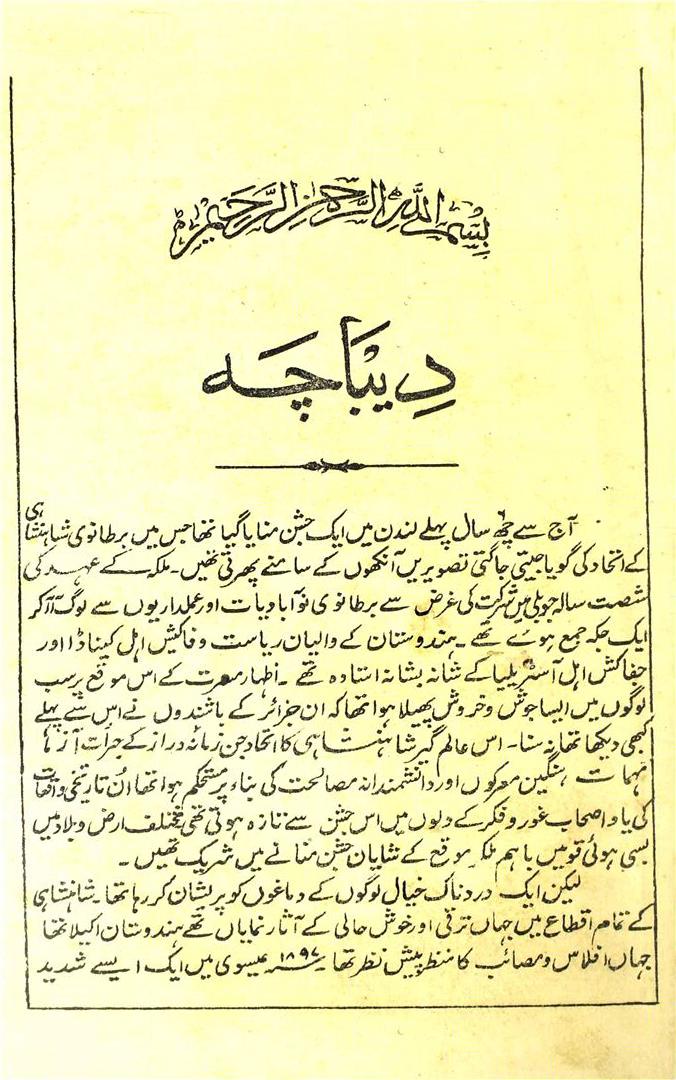 بسم اللہ الرحمن الرحیم
دیباچہ
آج سے چھ سال پہلے لندن میں ایک جشن منایا گیا تھا جس میں برطانوی شاہنشاہی
کے اتحاد کی گویا جیتی جاگتی تصویریں آنکھوں کے سامنے پھرتی تھیں۔ ملکہ کے عہد کی
شصت سالہ جوبلی میں شرکت کی غرض سے برطانوی نوآبادیات اور عملداریوں سے لوگ آ آکر
ایک جگہ جمع ہوے تھے۔ ہندوستان کے والیان ریاست وفاکیش اہل کیناڈا اور
جفاکش اہل آسٹریلیا کے شانہ بشانہ استادہ تھے۔ اظہار مسرت کے اس موقع پر سب
لوگوں میں ایسا جوش و خروش پھیلا ہوا تھا کہ ان جزائر کے باشندوں نے اس سے پہلے
کبھی دیکھا تھا نہ سنا۔ اس عالم گیر شاہنشاہی کا اتحاد جن زمانہ دراز کے جرات آزما
مہمات سنگین معرکوں اور دانشمندانہ مصالحت کی بناء پر مستحکم ہوا تھا اُن تاریخی واقعات
کی یاد اصحاب غور و فکر کے دلوں میں اس جشن سے تازہ ہوتی تھی مختلف ارض و بلاد میں
بسی ہوئی قومیں باہم ملکر موقع کے شایان جشن منانے میں شریک تھیں۔
لیکن ایک دردناک خیال لوگوں کے دماغوں کو پریشان کر رہا تھا۔ شاہنشاہی
کے تمام اقطاع میں جہاں ترقی اور خوش حالی کے آثار نمایاں تھے ہندوستان اکیلا تھا
جہاں افلاس و مصائب کا منظر پیش نظر تھا۔ ۱۸۹۷ عیسوی میں ایک ایسے شدید